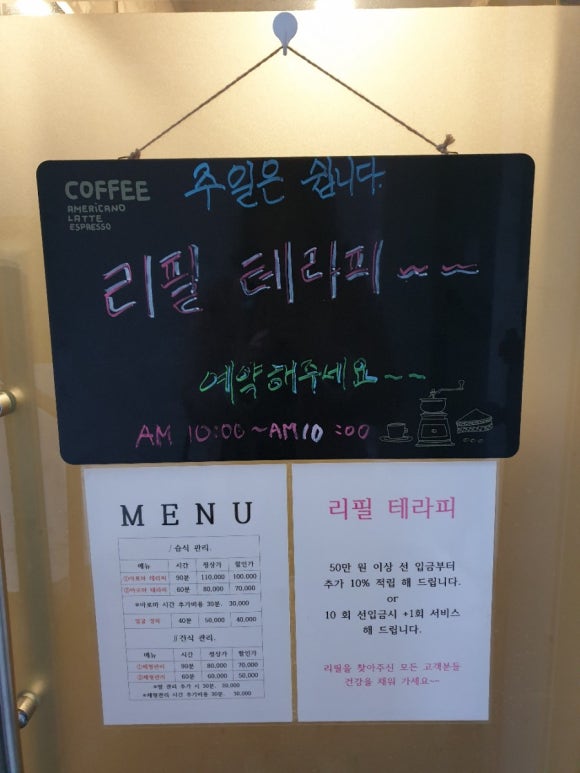 COFFEE
AMERICANO
LATTE
ESPRESSO
주일은 쉽니다.
리필 테라피~~
예약해주세요~~
AM 10:00~AM10:00
MENU
/ 습식 관리.
메뉴 시간 정상가 할인가
①아로마 테라피 90분 110,000 100,000
②아로마 테라피 60분 80,000 70,000
*아로마 시간 추가비용 30분. 30,000
얼굴 경락 40분 50,000 40,000
//건식 관리.
메뉴 시간 정상가 할인가
①체형관리 90분 80,000 70,000
②체형관리 60분 60,000 50,000
*발 관리 추가 시 30분. 20,000
*체형관리 시간 추가비용 30분. 30,000
리필 테라피
50만 원 이상 선 입금부터
추가 10% 적립 해 드립니다.
or
10 회 선입금시 +1회 서비스
해 드립니다.
리필을 찾아주신 모든 고객분들
건강을 채워 가세요~~